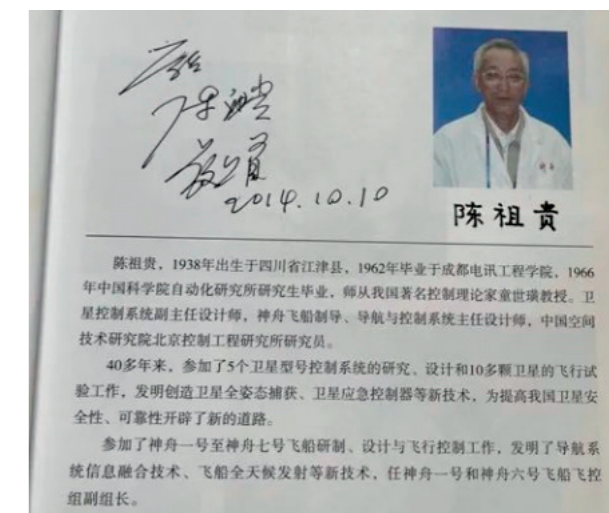 2014.10.10
陈祖贵
陈祖贵，1938年出生于四川省江津县，1962年毕业于成都电讯工程学院，1966
年中国科学院自动化研究所研究生毕业，师从我国著名控制理论家童世璜教授。卫
星控制系统副主任设计师，神舟飞船制导、导航与控制系统主任设计师，中国空间
技术研究院北京控制工程研究所研究员。
40多年来，参加了5个卫星型号控制系统的研究、设计和10多颗卫星的飞行试
验工作，发明创造卫星全姿态捕获、卫星应急控制器等新技术，为提高我国卫星安
全性、可靠性开辟了新的道路。
参加了神舟一号至神舟七号飞船研制、设计与飞行控制工作，发明了导航系
统信息融合技术、飞船全天候发射等新技术，任神舟一号和神舟六号飞船飞控
组副组长。